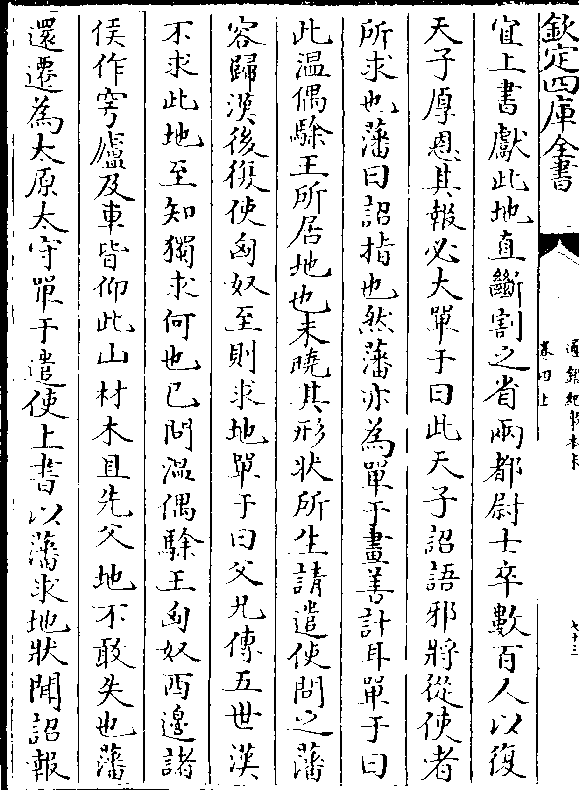 欽定四庫全書
通鑑紀事本末
卷四上
七十三
宜上書獻此地直斷割之省兩都尉士卒數百人以復
天子厚恩其報必大單于曰此天子詔語邪將從使者
所求也藩曰詔指也然藩亦為單于畫善計耳單于曰
此溫偶駼王所居地也未曉其形狀所生請遣使問之藩
容歸漢後復使匈奴至則求地單于曰父兄傳五世漢
不求此地至知獨求何也已問溫偶駼王匈奴西邊諸
侯作穹廬及車皆仰此山材木且先父地不敢失也藩
還遷為太原太守單于遣使上書以藩求地狀聞詔報